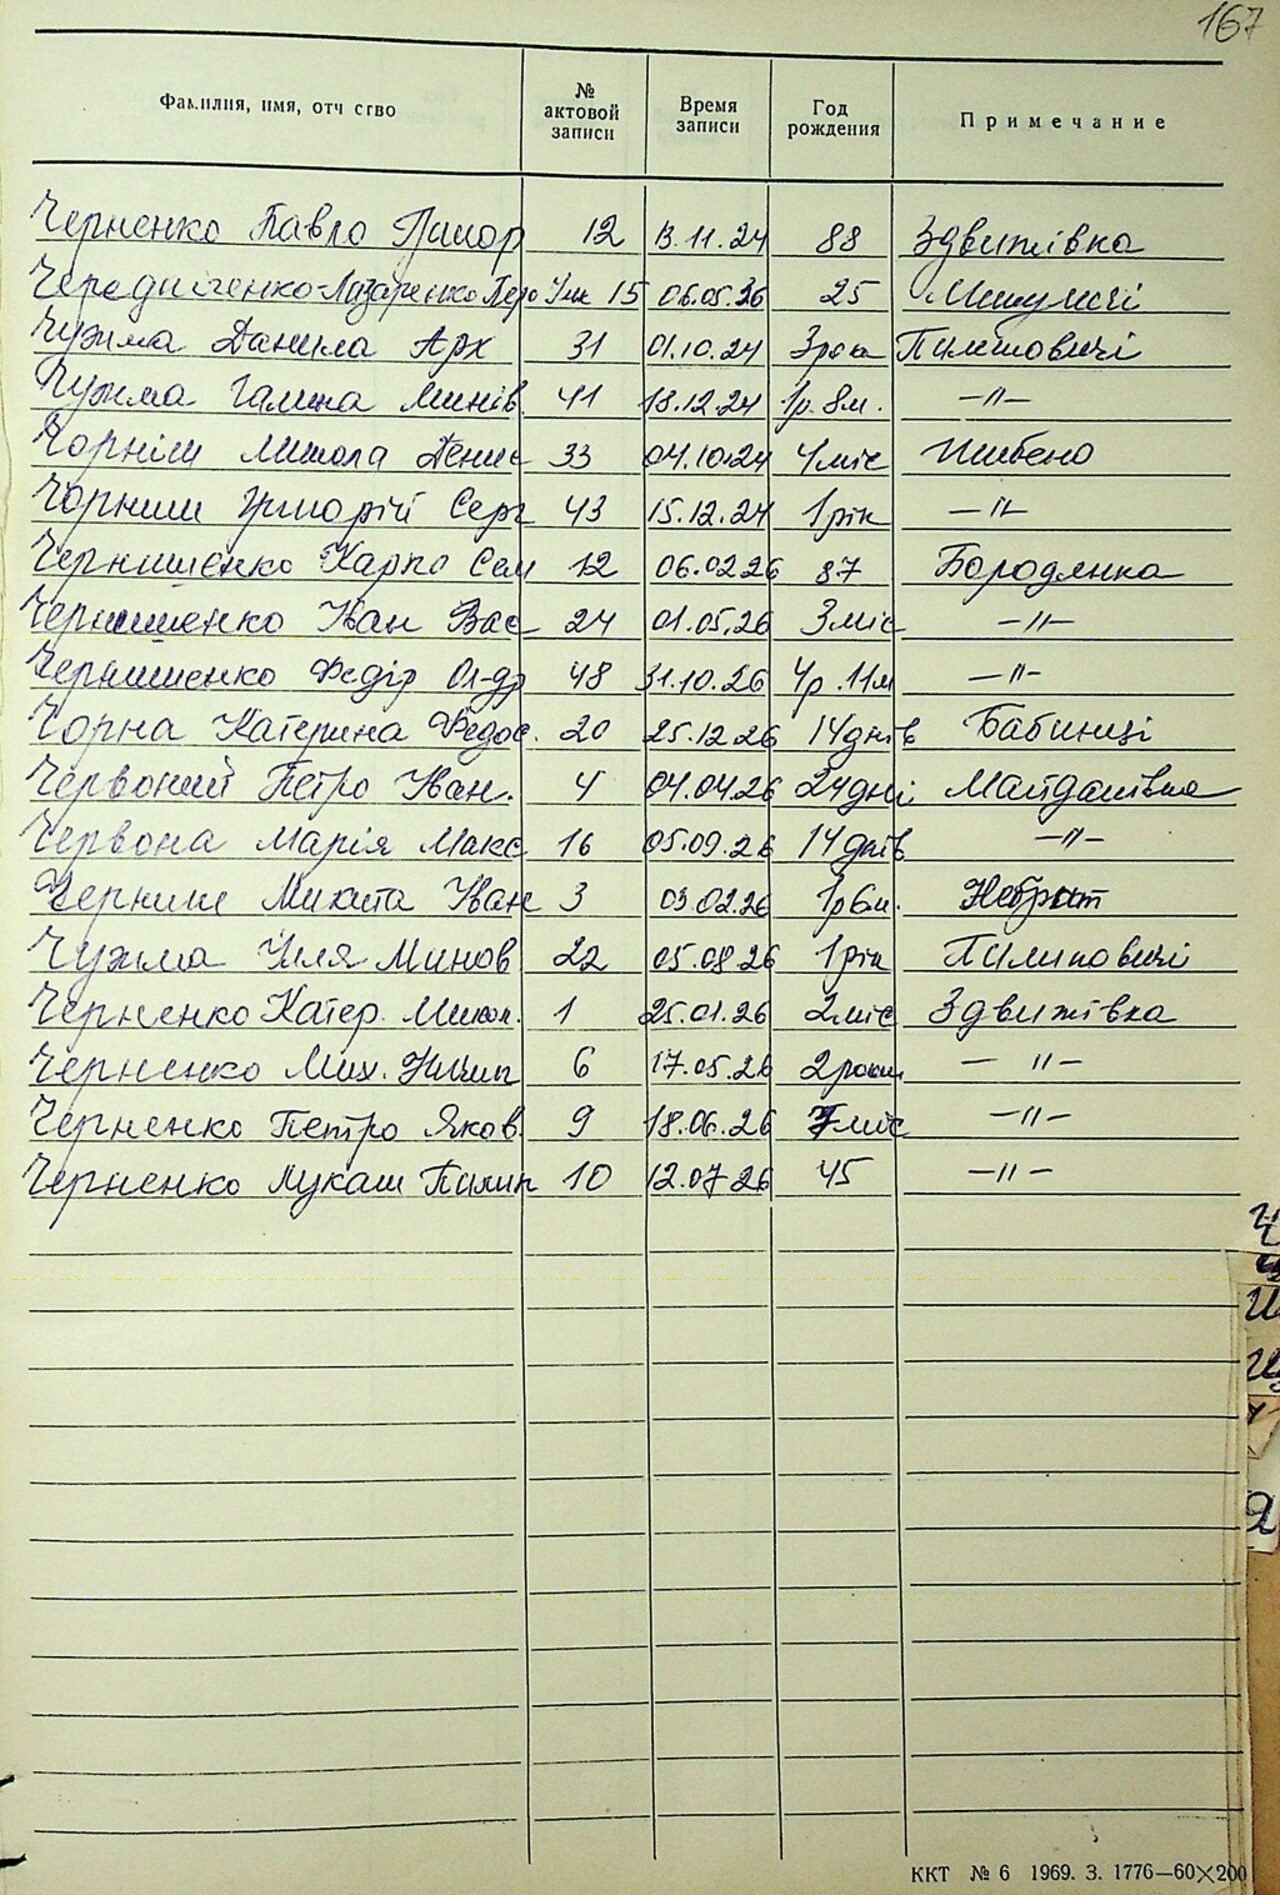 167
Фамилия, имя, отчество № актовой записи Время записи Год рождения Примечание
Черненко Павло Григор 12 13.11.24 88 Здвижівка
Чередніченко-Лазаренко Петро 15 06.05.36 25 Микуличі
Чужма Данила Арх 31 01.10.24 3 рок Пилиповичі
Чужма Галина Минів. 41 18.12.24 1р. 8м. —"—
Чорніш Микола Денис 33 04.10.24 4 міс Шибено
Чорниш Григорій Серг 43 15.12.24 1 рік —"—
Чернишенко Карпо Сем 12 06.02.26 87 Бородянка
Чернишенко Іван Вас 24 01.05.26 3 міс —"—
Чернишенко Федір Ол-др 48 31.10.26 4р. 11м —"—
Чорна Катерина Федос. 20 25.12.26 14 днів Бабинці
Червоний Петро Іван. 4 04.04.26 24 дні Майданівка
Червона Марія Макс 16 05.09.26 14 днів —"—
Черниш Микита Іван 3 03.02.26 1р 6м. Небрат
Чужма Ілля Минов 22 05.08.26 1 рік Пилиповичі
Черненко Катер. Микол. 1 25.01.26 2 міс Здвижівка
Черненко Мих. Ничип 6 17.05.26 2 роки —"—
Черненко Петро Яков. 9 18.06.26 7 міс —"—
Черненко Лукаш Пилип 10 12.07.26 45 —"—
Я
ККТ № 6 1969. З. 1776—60×200